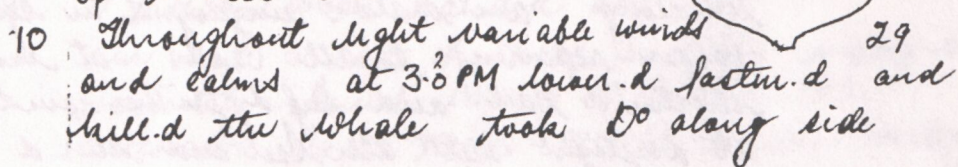 10 Throughout light variable winds 29
and calms at 3.30 PM lower.d fasten.d and
kill.d the Whale took Do along side